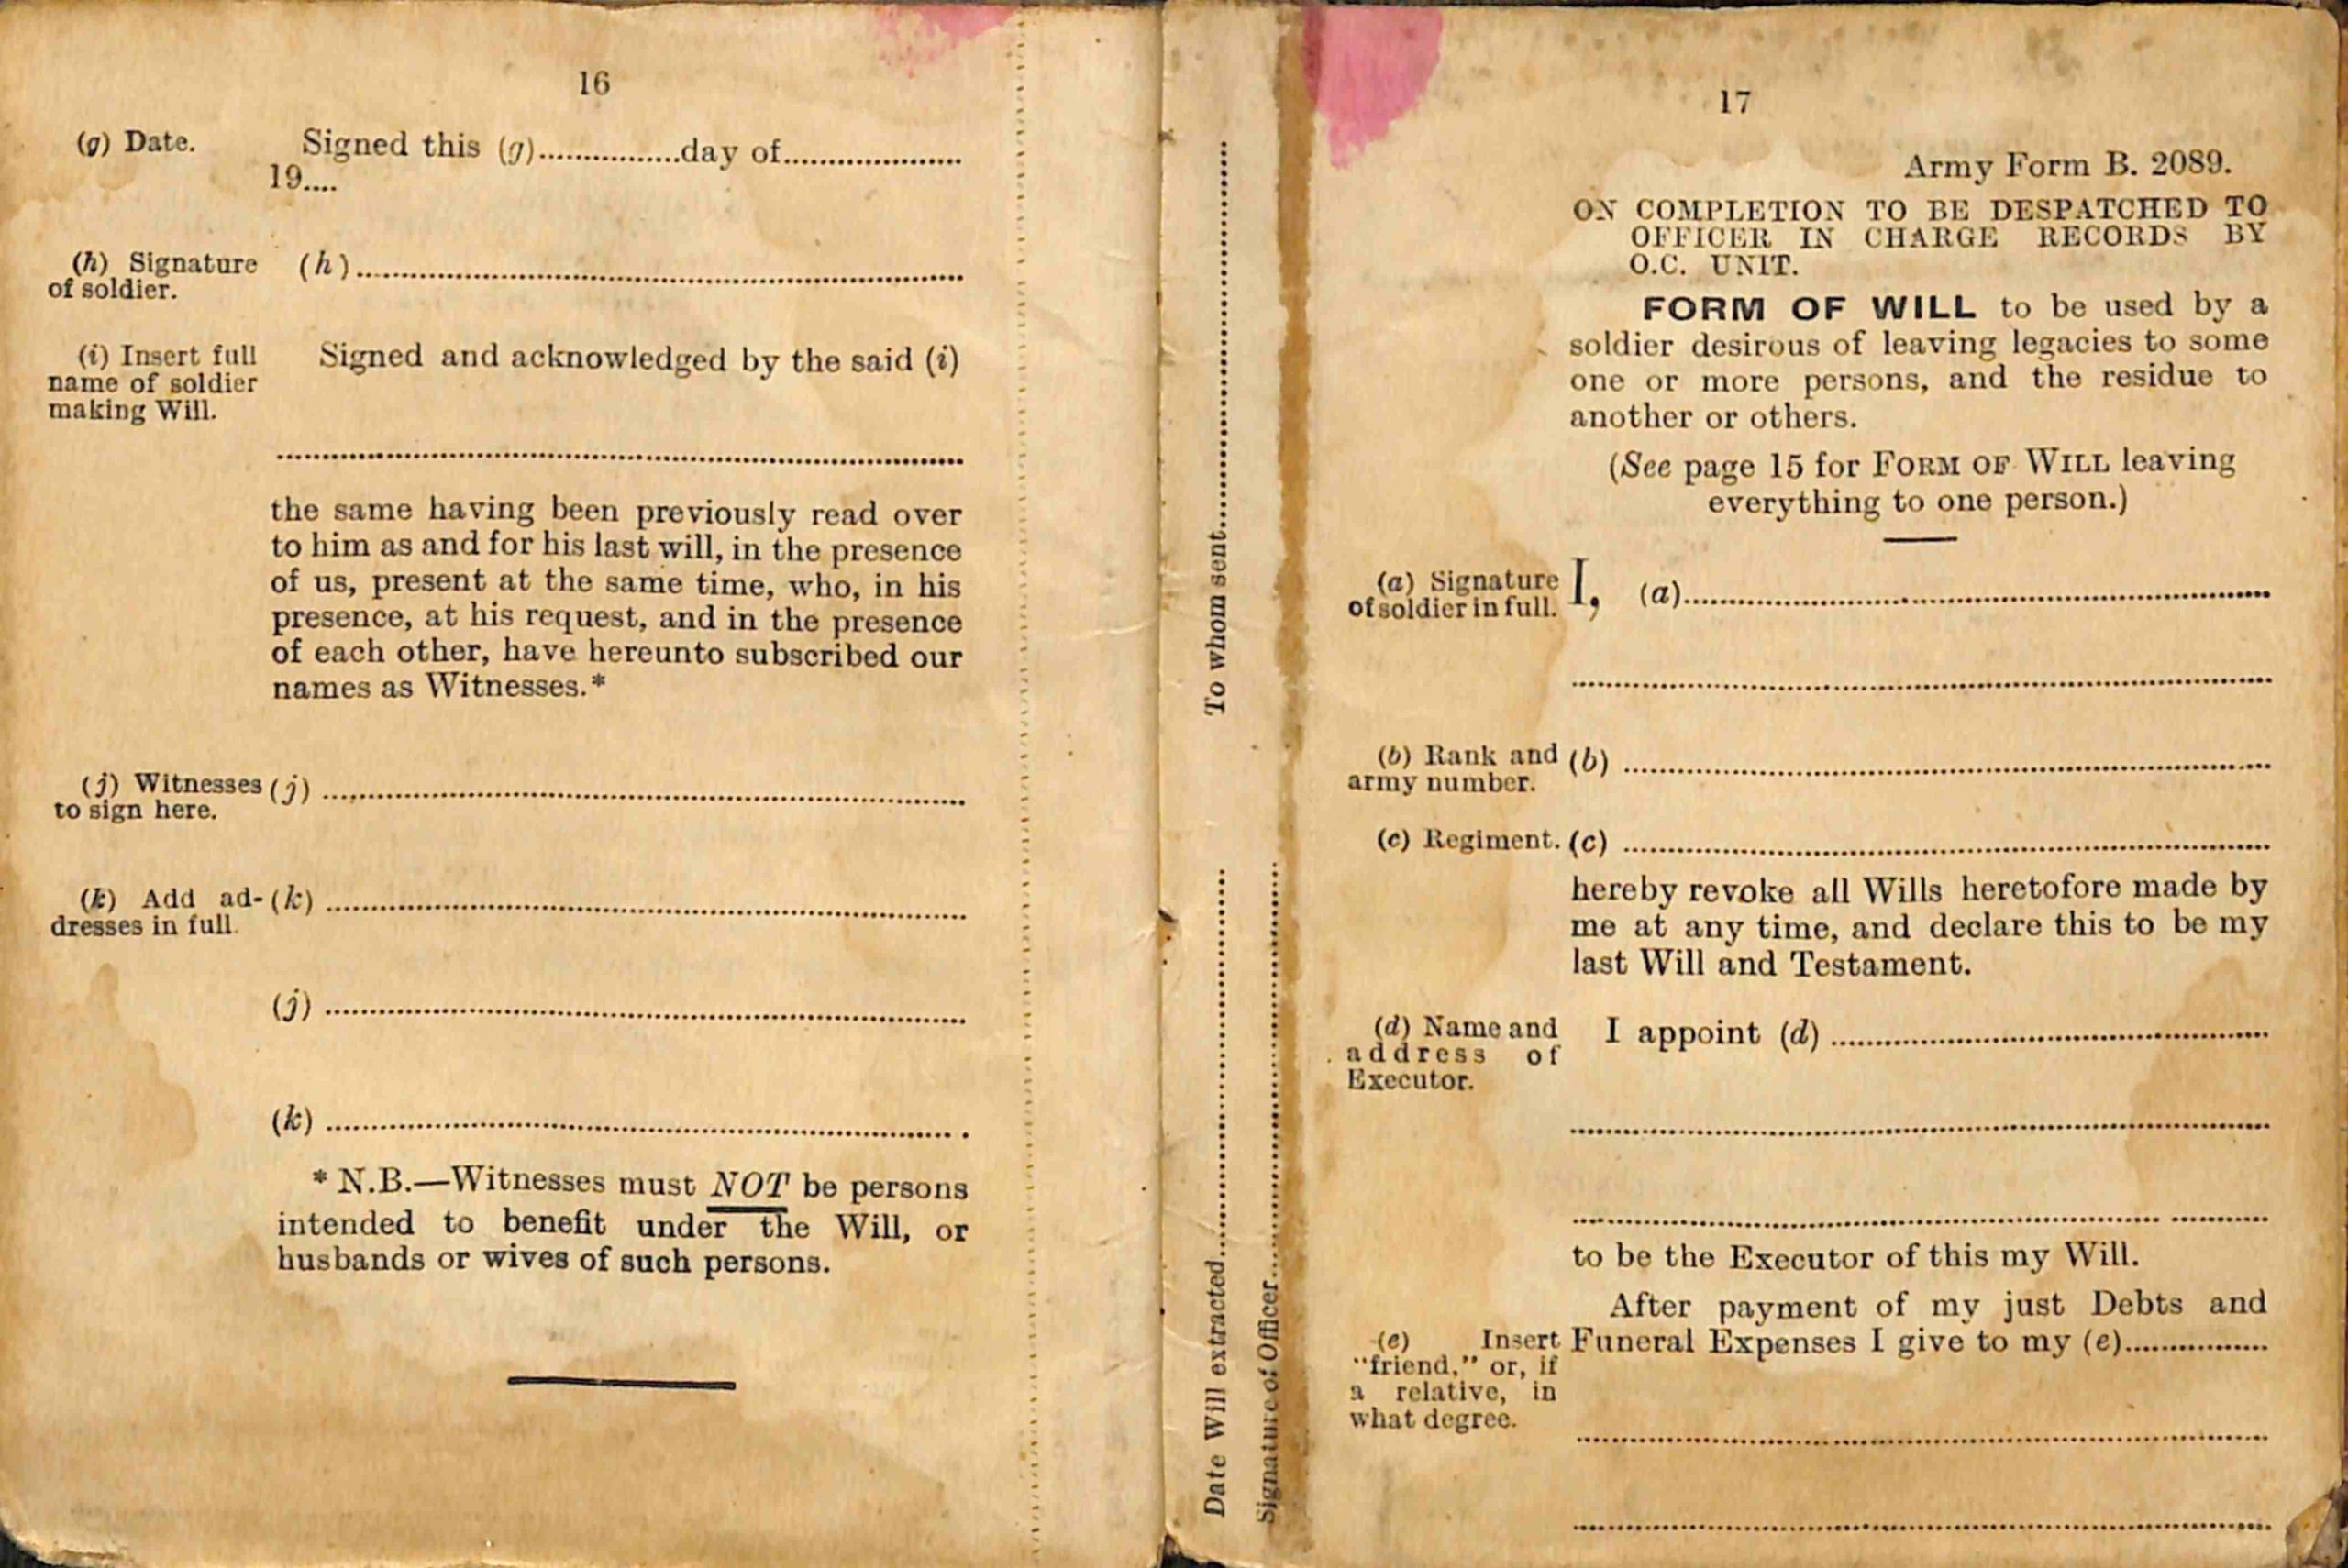 16
(g) Date.
Signed this (g)................day of....................
19....
(h) Signature
of soldier.
(h)......................................................................
(i) Insert full
name of soldier
making Will.
Signed and acknowledged by the said (i)
................................................................................
the same having been previously read over
to him as and for his last will, in the presence
of us, present at the same time, who, in his
presence, at his request, and in the presence
of each other, have hereunto subscribed our
names as Witnesses.*
(j) Witnesses
to sign here.
(j) ..........................................................................
(k) Add ad-
dresses in full.
(k) ..........................................................................
(j) ..........................................................................
(k) ..........................................................................
* N.B.—Witnesses must NOT be persons
intended to benefit under the Will, or
husbands or wives of such persons.
To whom sent.............................................
Date Will extracted.............................................
Signature of Officer.............................................
17
Army Form B. 2089.
ON COMPLETION TO BE DESPATCHED TO
OFFICER IN CHARGE RECORDS BY
O.C. UNIT.
FORM OF WILL to be used by a
soldier desirous of leaving legacies to some
one or more persons, and the residue to
another or others.
(See page 15 for FORM OF WILL leaving
everything to one person.)
(a) Signature
of soldier in full.
I, (a)....................................................................
................................................................................
(b) Rank and
army number.
(b) ..........................................................................
(c) Regiment.
(c) ..........................................................................
hereby revoke all Wills heretofore made by
me at any time, and declare this to be my
last Will and Testament.
(d) Name and
address of
Executor.
I appoint (d) ..................................................
................................................................................
................................................................................
to be the Executor of this my Will.
After payment of my just Debts and
(e) Insert
"friend," or, if
a relative, in
what degree.
Funeral Expenses I give to my (e)................
................................................................................
................................................................................